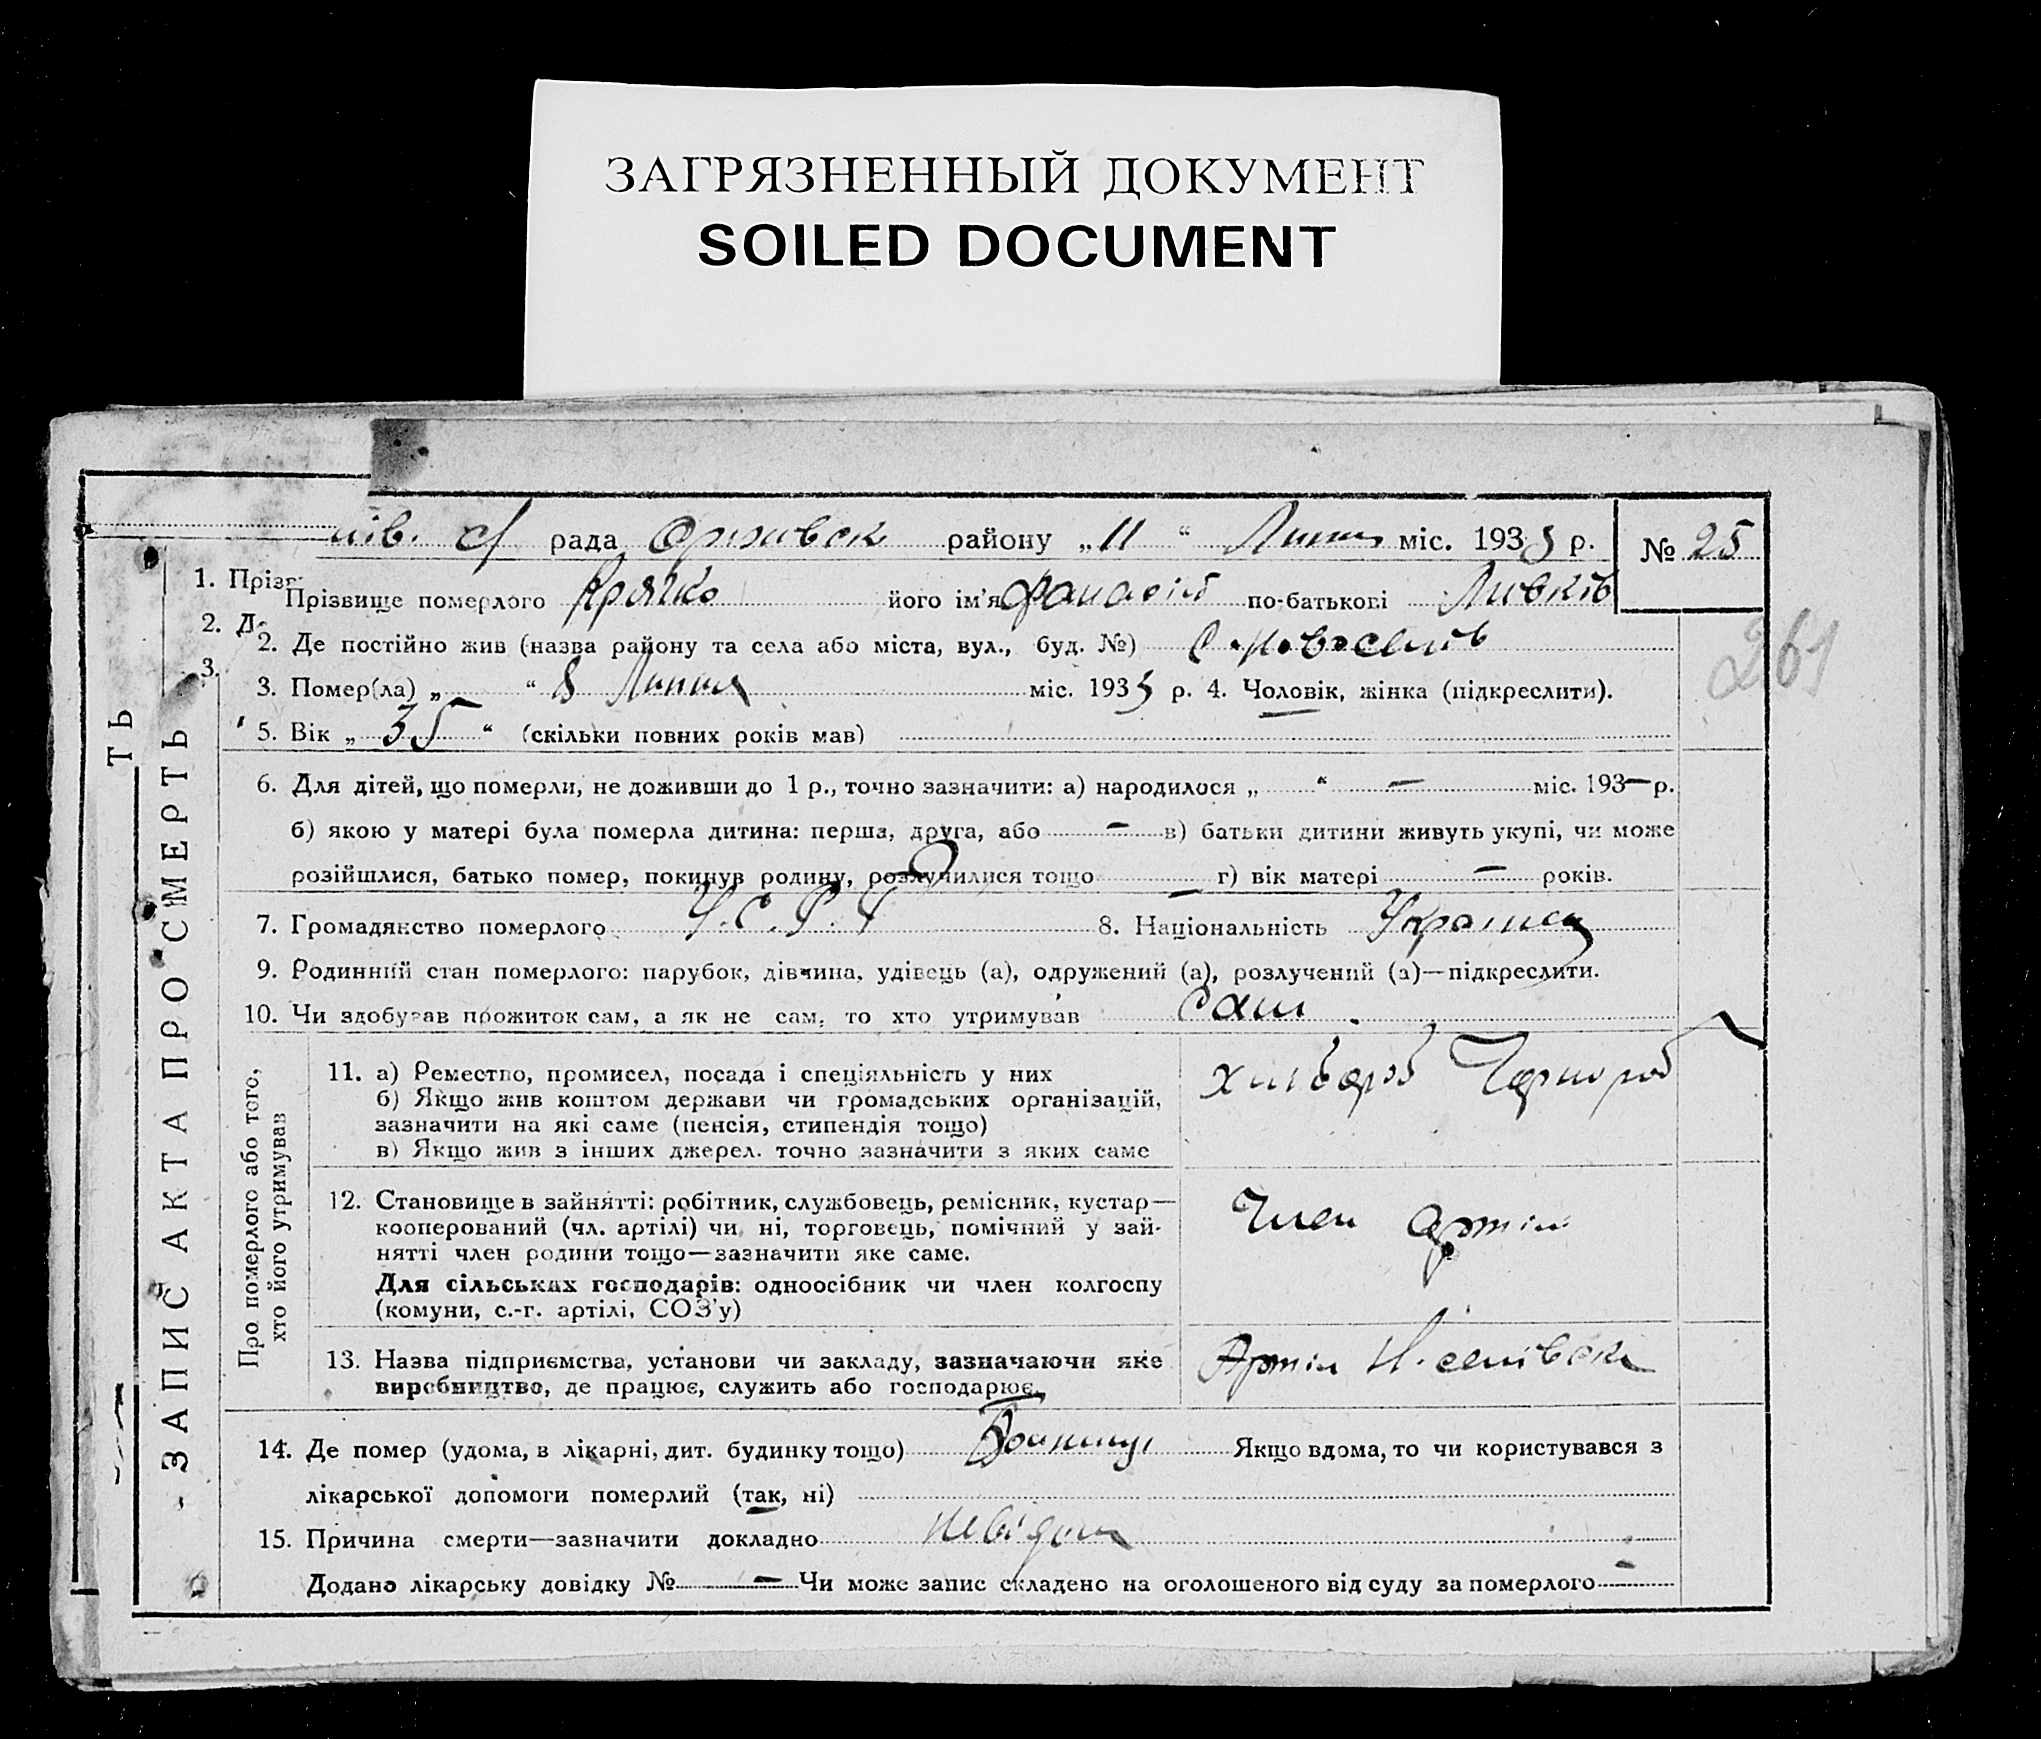 ЗАГРЯЗНЕННЫЙ ДОКУМЕНТ
SOILED DOCUMENT
с/ рада район у „11“ Липня міс. 1933 р. № 25
1. Прізв
Прізвище померлого Крячко його ім'я Фанасій по-батькові
2. Де
2. Де постійно жив (назва району та села або міста, вул., буд. №) С. Новоселів
261
3.
3. Помер(ла) „ “ 8 Липня міс. 1933 р. 4. Чоловік, жінка (підкреслити).
5. Вік „ 35 “ (скільки повних років мав)
6. Для дітей, що померли, не доживши до 1 р., точно зазначити: а) народилося „ “ — міс. 193— р.
б) якою у матері була померла дитина: перша, друга, або — в) батьки дитини живуть укупі, чи може
розійшлися, батько помер, покинув родину, розлучилися тощо — г) вік матері — років.
7. Громадянство померлого У.С.Р.Р 8. Національність Українец
9. Родинний стан померлого: парубок, дівчина, удівець (а), одружений (а), розлучений (а)—підкреслити.
10. Чи здобував прожиток сам, а як не сам, то хто утримував Сам
ТЬ
ЗАПИС АКТА ПРО СМЕРТЬ
Про померлого або того,
хто його утримував
11. а) Ремество, промисел, посада і спеціяльність у них хлібороб Чорнороб
б) Якщо жив коштом держави чи громадських організацій,
зазначити на які саме (пенсія, стипендія тощо)
в) Якщо жив з інших джерел. точно зазначити з яких саме
12. Становище в зайнятті: робітник, службовець, ремісник, кустар— Член артілі
кооперований (чл. артілі) чи ні, торговець, помічний у зай-
нятті член родини тощо—зазначити яке саме.
Для сільських господарів: одноосібник чи член колгоспу
(комуни, с.-г. артілі, СОЗ'у)
13. Назва підприємства, установи чи закладу, зазначаючи яке Артіл Н.селівска
виробництво, де працює, служить або господарює.
14. Де помер (удома, в лікарні, дит. будинку тощо) Якщо вдома, то чи користувався з
лікарської допомоги померлий (так, ні)
15. Причина смерти—зазначити докладно невідома
Додано лікарську довідку № — Чи може запис складено на оголошеного від суду за померлого —